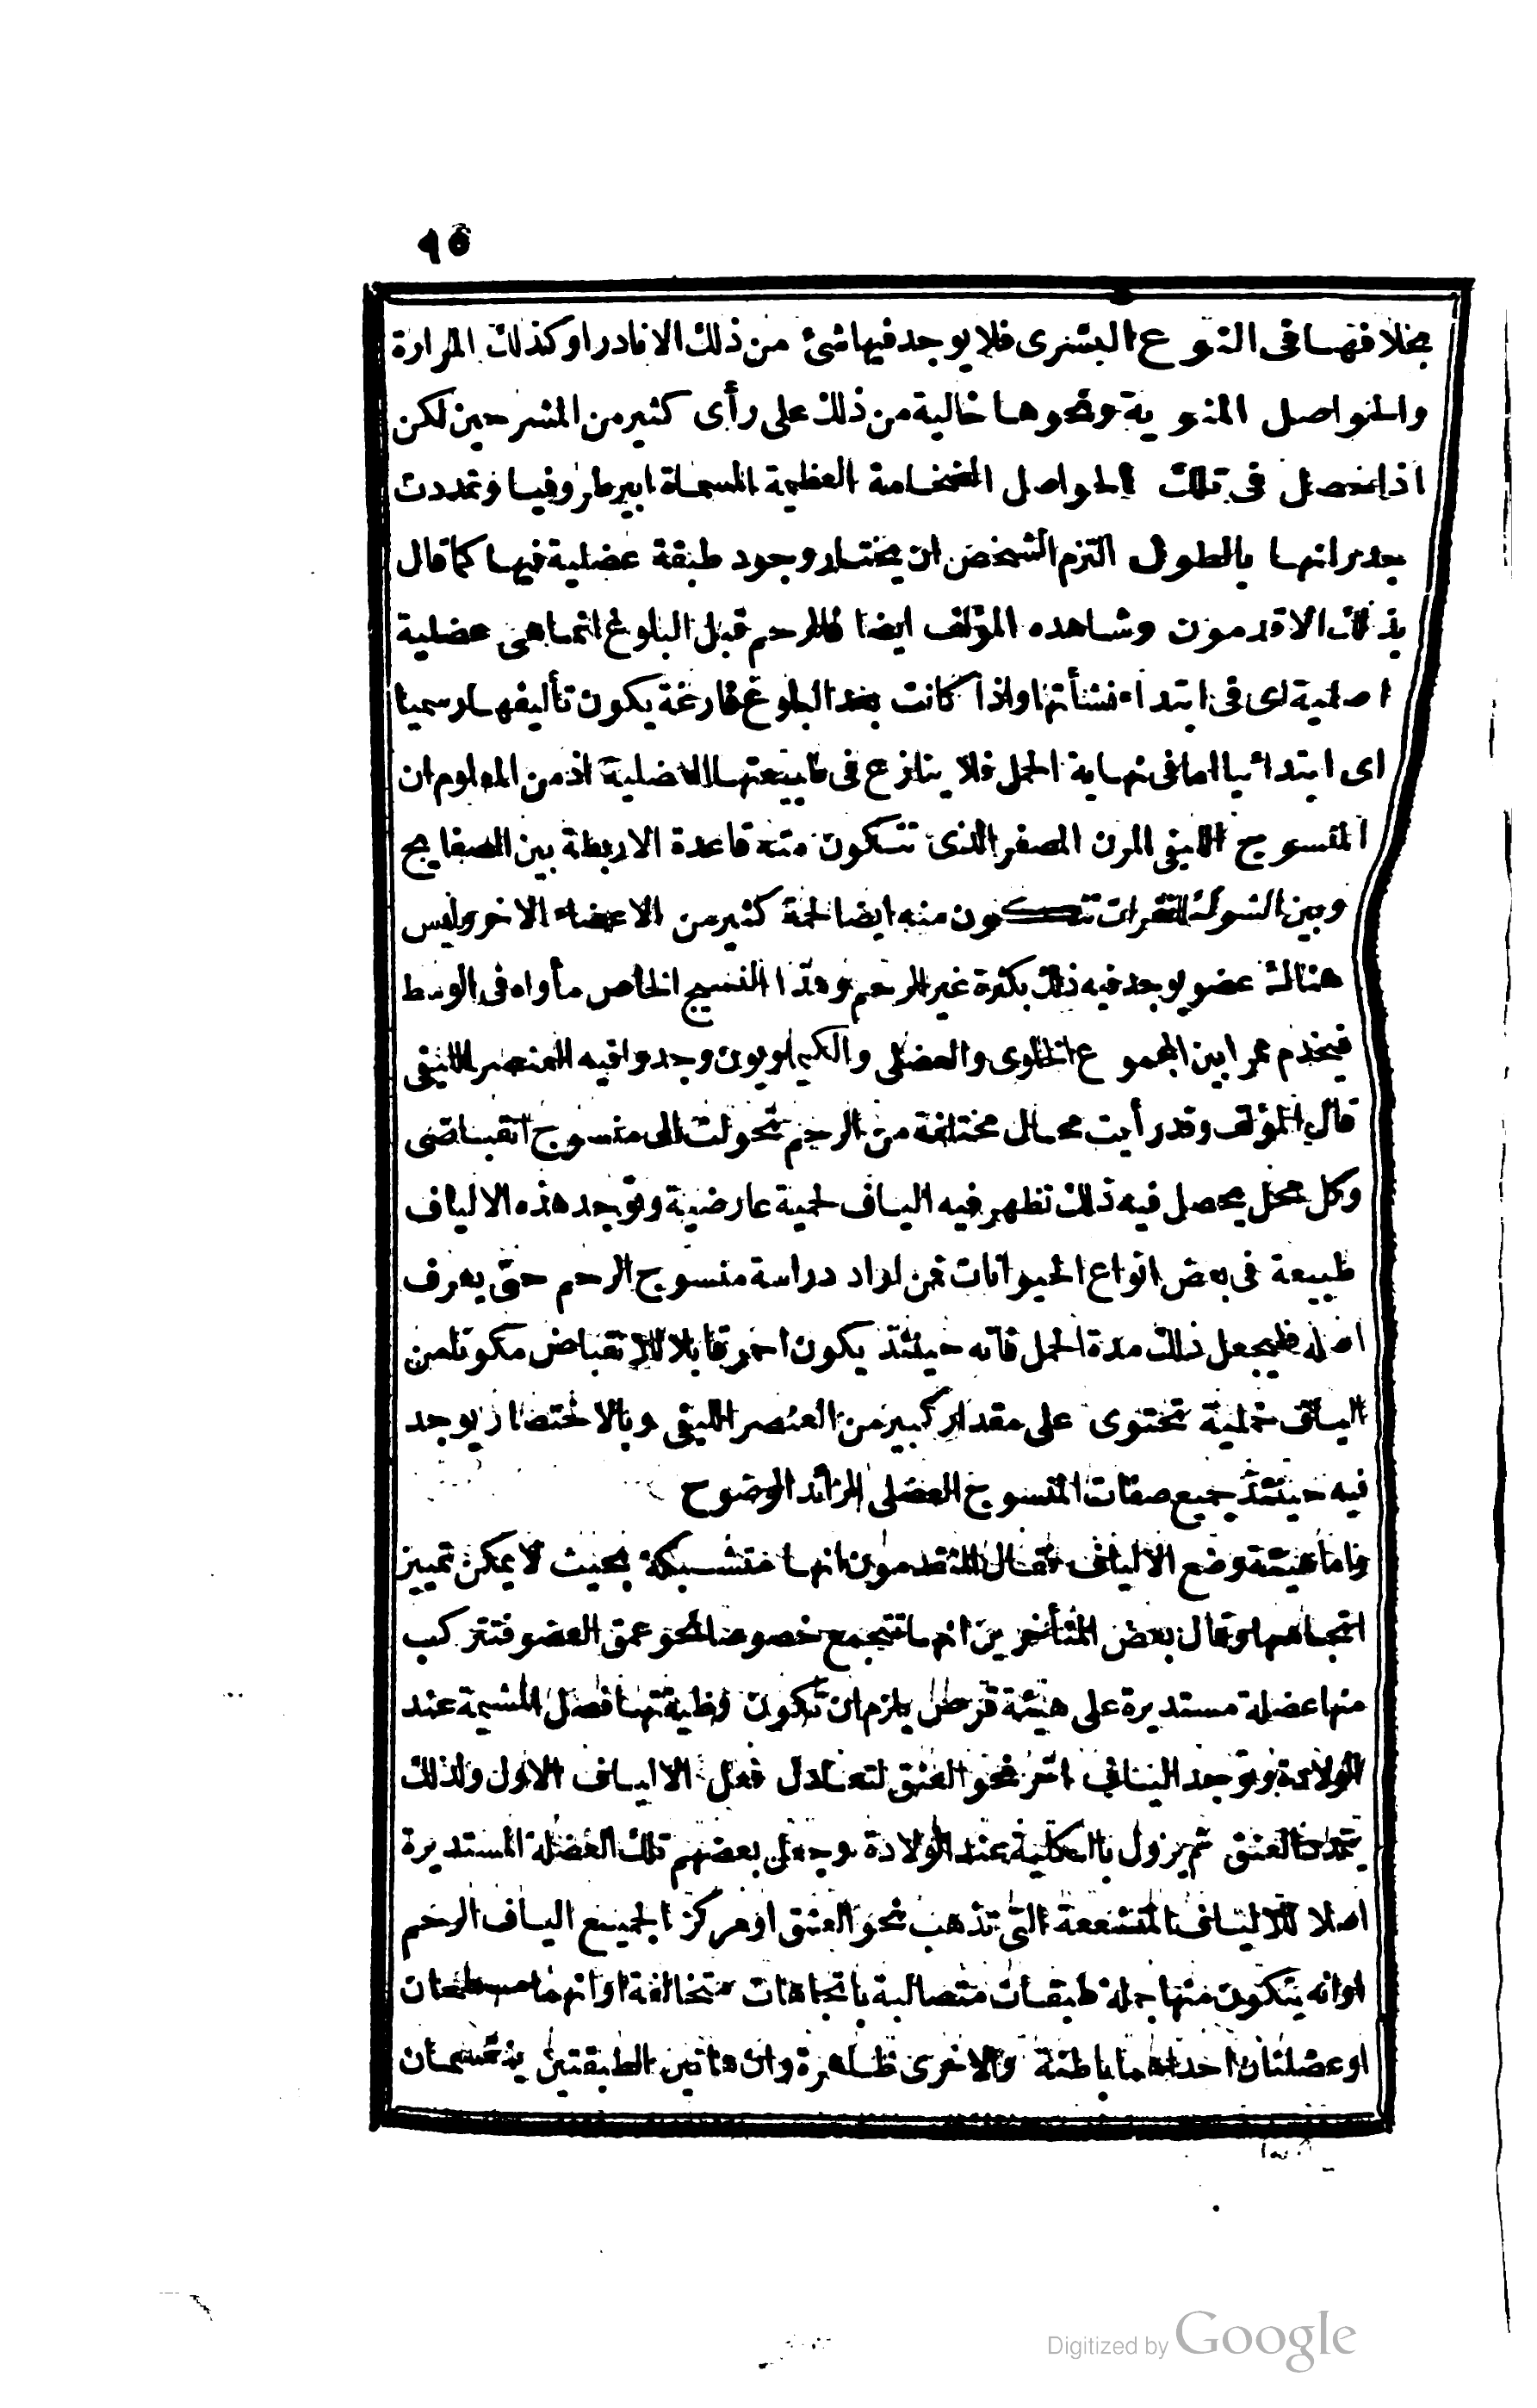 ٩٥
بخلافها فى النوع البشرى فلا يوجد فيها شئ من ذلك الا نادرا وكذلك المرارة
والحواصل المنوية ونحوها خالية من ذلك على رأى كثير من المشرحين لكن
اذا حصل فى تلك الحواصل الضخامة العظيمة المسماة ايبرطروفيا وتمددت
جدرانها بالطول التزم الشخص ان يختار وجود طبقة عضلية فيها كما قال
بذلك الاقدمون وشاهده المؤلف ايضا فالرحم قبل البلوغ انما هى عضلية
اصلية اى فى ابتداء نشأتها واذا كانت بعد البلوغ فارغة يكون تأليفها رسميا
اى ابتدائيا اما فى نهاية الحمل فلا ينازع فى طبيعتها العضلية اذ من المعلوم ان
المنسوج الليفى المرن المصفر الذى تتكون منه قاعدة الاربطة بين الصفايح
وبين الشوك للفقرات تتكون منه ايضا لحمة كثير من الاعضاء الاخر وليس
هنالك عضو يوجد فيه ذلك بكثرة غير الرحم وهذا النسيج الخاص مأواه فى الوسط
فيخدم ممرا بين المجموع الخلوى والعضلى والكيماويون وجدوا فيه العنصر الليفى
قال المؤلف وقد رأيت محال مختلفة من الرحم تحولت الى منسوج انقباضى
وكل محل يحصل فيه ذلك تظهر فيه الياف لحمية عارضية وتوجد هذه الالياف
طبيعة فى بعض انواع الحيوانات فمن اراد دراسة منسوج الرحم حتى يعرف
اصله فليجعل ذلك مدة الحمل فانه حينئذ يكون احمر قابلا للانقباض مكونا من
الياف خملية تحتوى على مقدار كبير من العنصر الليفى وبالاختصار يوجد
فيه حينئذ جميع صفات المنسوج العضلى الزائد الوضوح
واما هيئة وضع الالياف فقال المتقدمون انها متشبكة بحيث لا يمكن تمييز
اتجاهها وقال بعض المتأخرين انها تتجمع خصوصا نحو عمق العضو فتتركب
منها عضلة مستديرة على هيئة قرص يلزم ان تكون وظيفتها فصل المشيمة عند
الولادة وتوجد الياف اخر نحو العنق لتعادل فعل الالياف الاول ولذلك
يتمدد العنق ثم يزول بالكلية عند الولادة وجعل بعضهم تلك العضلة المستديرة
اصلا للالياف المتشععة التى تذهب نحو العنق او مركزا لجميع الياف الرحم
اوانه يتكون منها جملة طبقات متصالبة باتجاهات متخالفة او انهما مسطحان
او عضلتان احداهما باطنة والاخرى ظاهرة وان هاتين الطبقتين ينقسمان
Digitized by Google